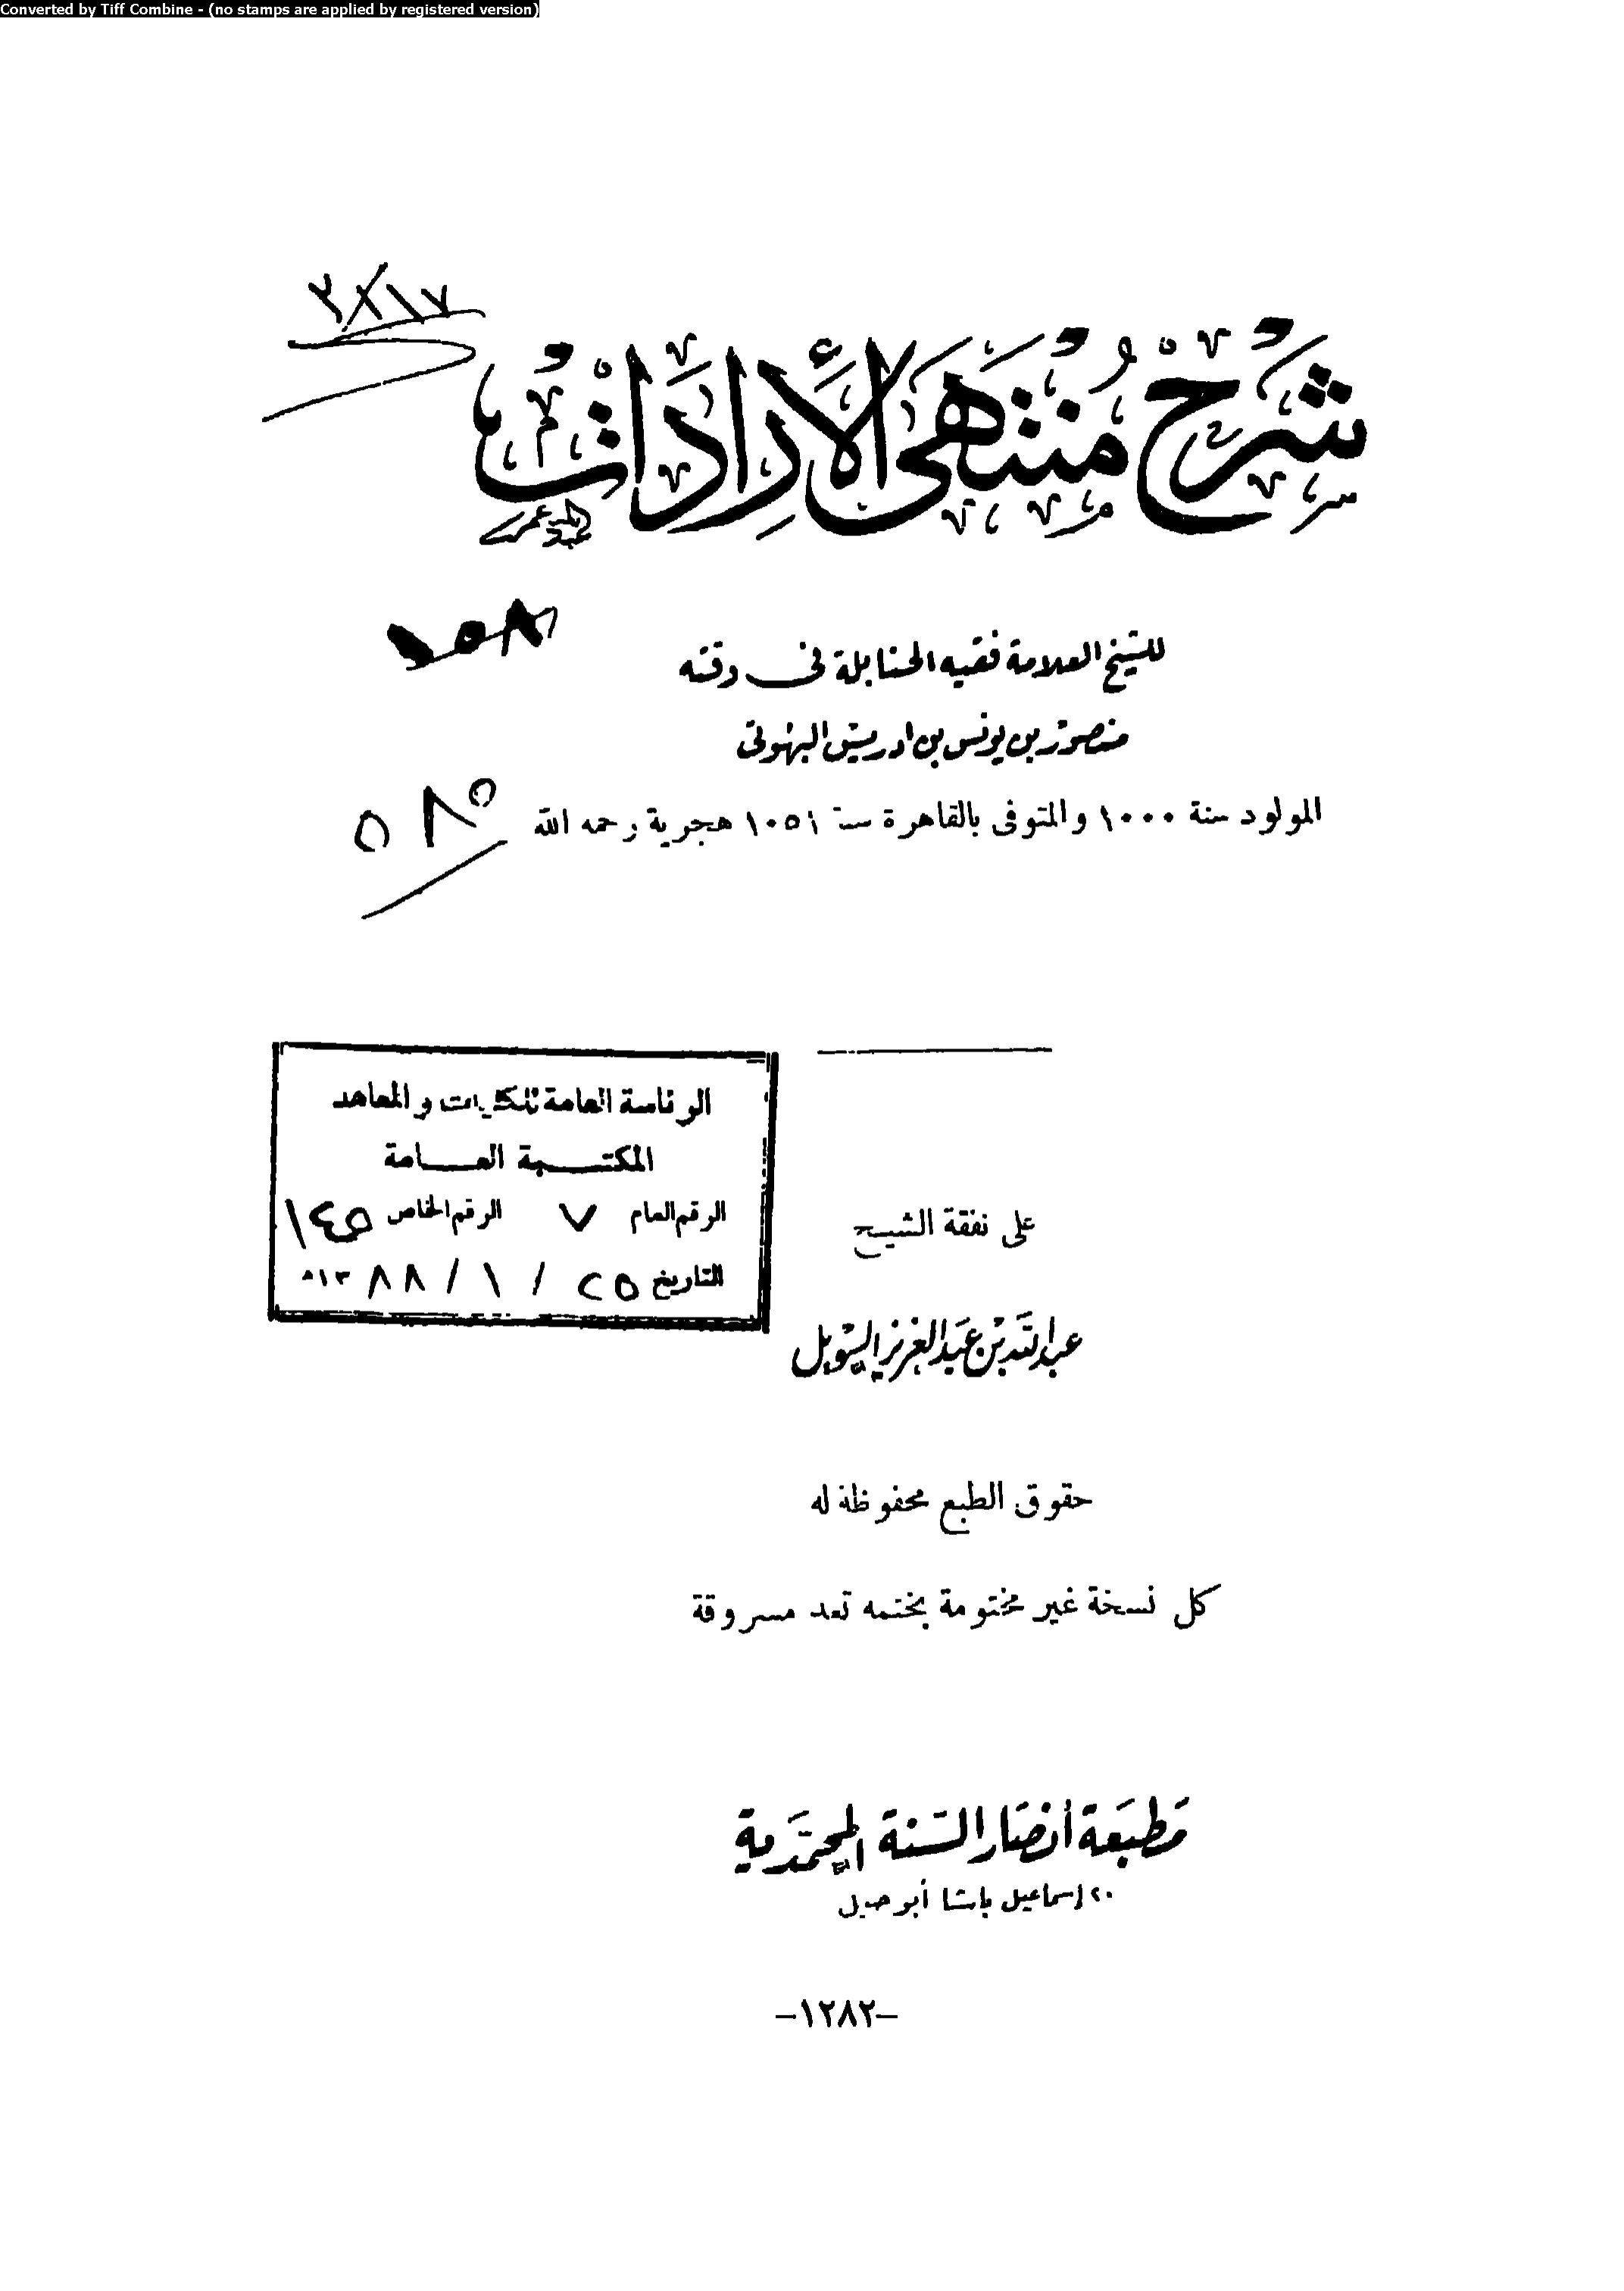 Converted by Tiff Combine - (no stamps are applied by registered version)
شَرْحُ مُنْتَهَى الْإِرَادَاتِ
للشيخ العلامة فقيه الحنابلة في وقته
منصور بن يونس بن ادريس البهوتى
المولود سنة ١٠٠٠ والمتوفى بالقاهرة سنة ١٠٥١ هجرية رحمه الله
١٥٨
٥٨٥
الرئاسة العامة للكليات والمعاهد
المكتبة العامة
الرقم العام ٧ الرقم الخاص ١٤٥
التاريخ ٢٥ / ١ / ١٣٨٨ هـ
على نفقة الشيخ
عبد الله بن عبد العزيز السويل
حقوق الطبع محفوظة له
كل نسخة غير مختومة بختمه تعد مسروقة
مطبعة أنصار السنة المحمدية
٢٠ إسماعيل باشا أبو جبل
-١٢٨٢-